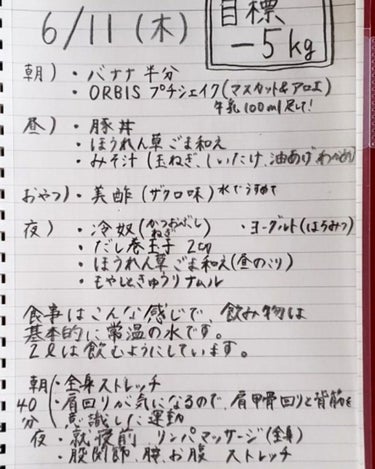 6/11(木)
目標
-5kg
朝)・バナナ半分
・ORBIS プチシェイク(マスカット&アロエ)
牛乳100ml足して!
昼)・豚丼
・ほうれん草ごま和え
・みそ汁(玉ねぎ、しいたけ、油あげ わかめ)
おやつ)・美酢(ザクロ味)水でうすめて
夜)・冷奴(かつおぶし ねぎ) ・ヨーグルト(はちみつ)
・だし巻玉子 2コ
・ほうれん草ごま和え(昼のこり)
・もやしときゅうりナムル
食事はこんな感じで、飲み物は
基本的に常温の水です。
2Lは飲むようにしています。
朝 ・全身ストレッチ
40分 ・肩回りが気になるので、肩甲骨回りと背筋を
意識した運動
夜・就寝前 リンパマッサージ(全身)
・股関節、腰、お腹 ストレッチ